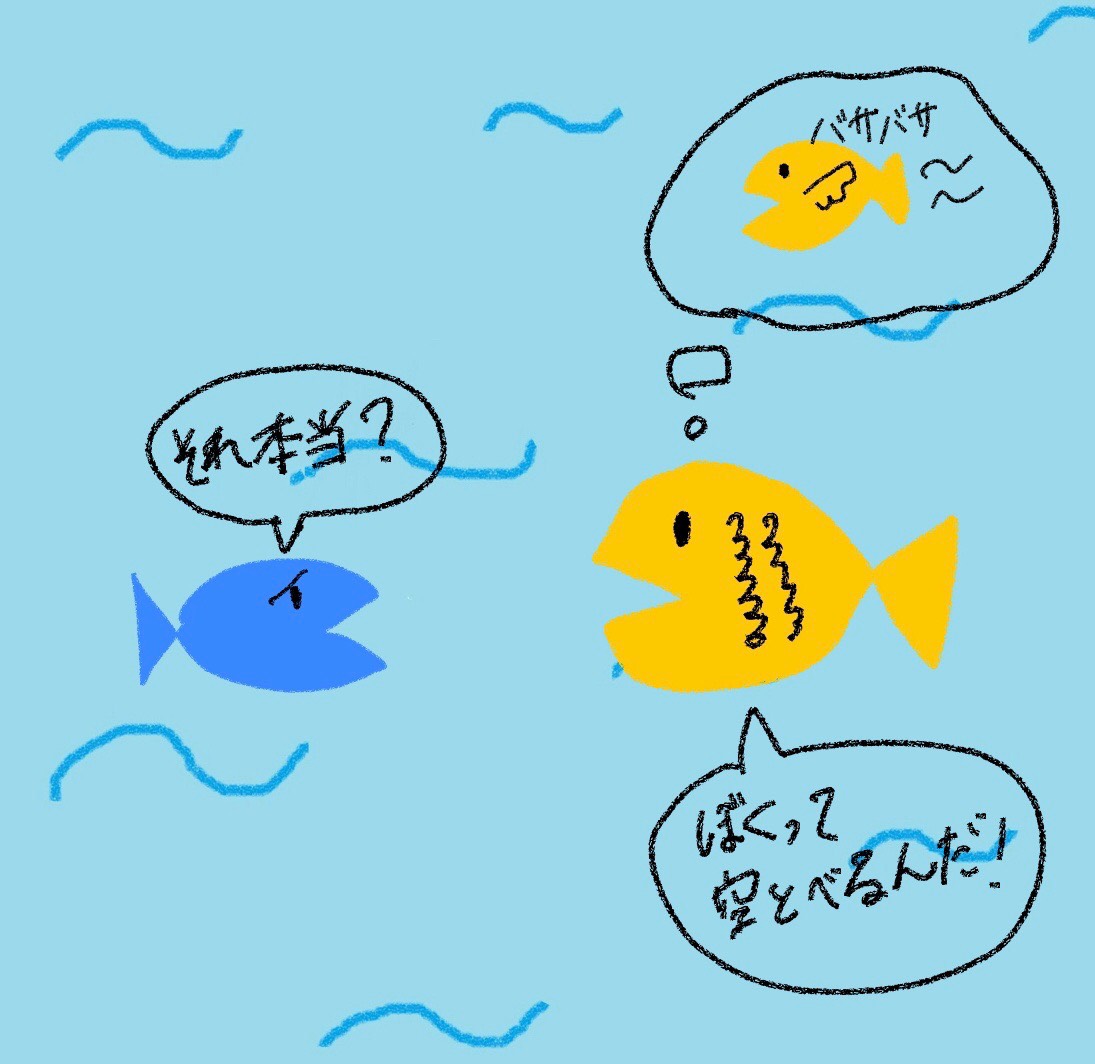 バサバサ
それ本当?
ぼくって
空とべるんだ!